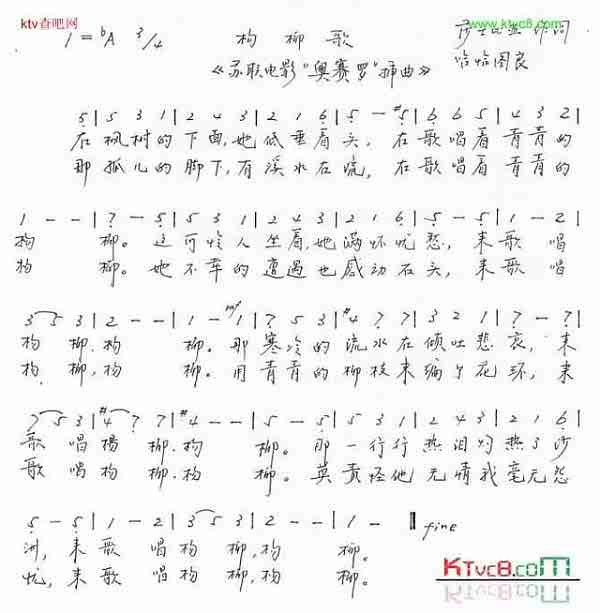 ktv查吧网
www.ktvc8.com
1=bA 3/4 枸柳歌 莎士比亚 作词
《苏联电影"奥赛罗"插曲》 哈恰图良
5 | 5 3 1 | 2 4 3 | 2 1 6 | 5 - #5 | 6 6 5 | 4 3 2 |
在枫树的下面,她低垂着头, 在歌唱着青青的
那孤儿的脚下,有溪水在流, 在歌唱着青青的
1 - - | 7 - 5 | 5 3 1 | 2 4 3 | 2 1 6 | 5 - 5 | 1 - 2 |
枸 柳。这可怜人坐着,她满怀忧愁, 来歌 唱
枸 柳。她不幸的遭遇也感动石头, 来歌 唱
3 5 3 | 2 - - | 1 - 1 | 7 5 3 | #4 7 7 | 3 2 1 | 7 - 7 |
mf
枸 柳,枸 柳。那寒冷的流水在倾吐悲哀, 来
枸 柳,枸 柳。用青青的柳枝来编个花环, 来
7 5 3 | #4 7 7 | #4 - - | 5 - 5 | 5 3 1 | 2 4 3 | 2 1 6 |
歌 唱杨 柳,枸 柳。那一行行热泪灼热了沙
歌 唱枸 柳,枸 柳。莫责怪他无情我毫无怨
5 - 5 | 1 - 2 | 3 5 3 | 2 - - | 1 - ‖ fine
洲, 来歌 唱枸 柳,枸 柳。
忧, 来歌 唱枸 柳,枸 柳。
KTvc8.com